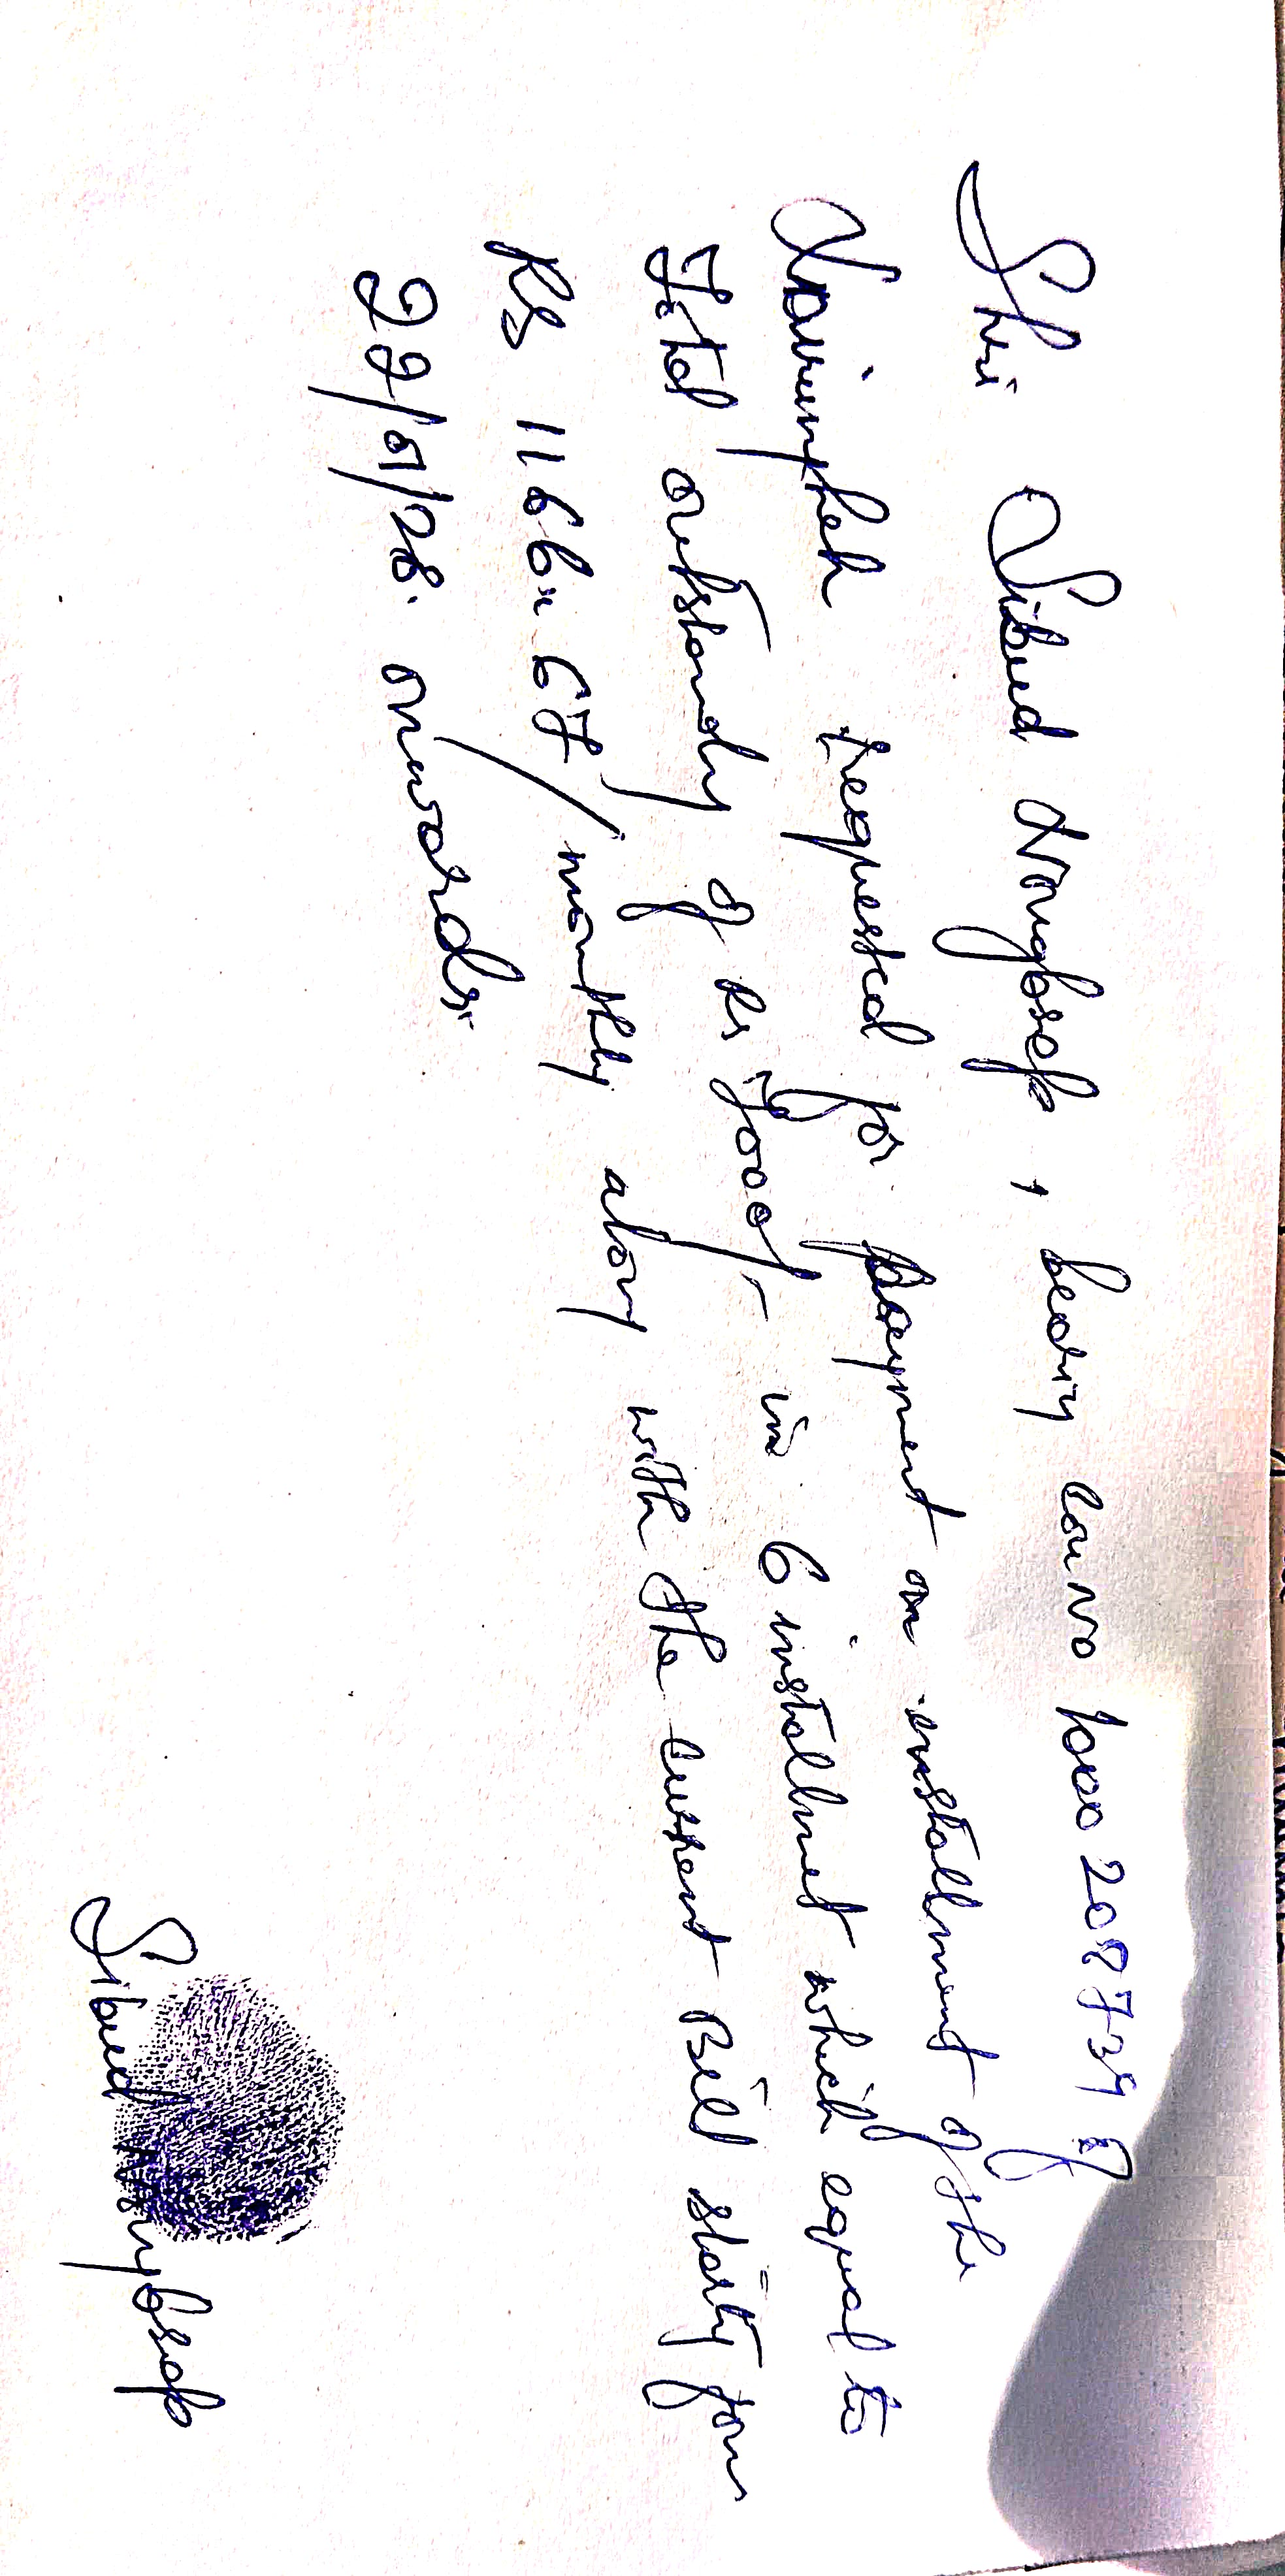 Shri Sibud Nongbsep, bearing con no 1000208739 of
requested for payment on installment of the
Total outstanding of Rs 7000/- in 6 installmet which equal to
Rs 1166.67/monthly along with the current Bill starting from
22/01/26 onwards.
Sibud Nongbsap